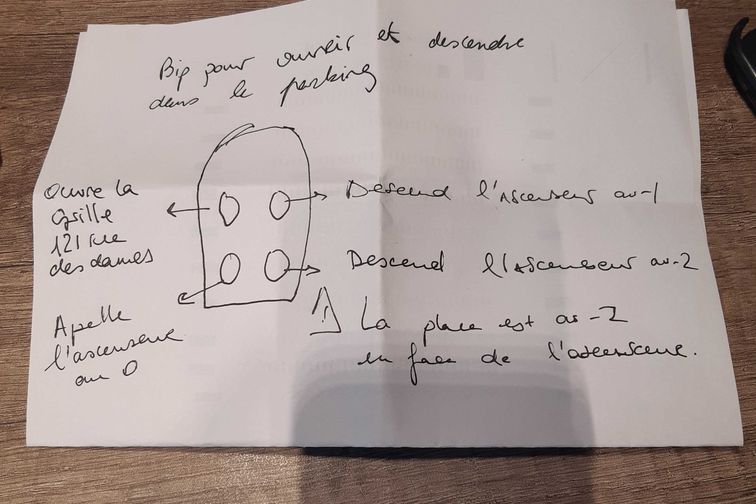 Bip pour ouvrir et descendre
dans le parking
Ouvre la
Grille
121 rue
des dames
Descend l'Ascenseur au-1
Apelle
l'ascenseur
au 0
Descend l'Ascenseur au-2
! La place est au-2
en face de l'ascenseur.